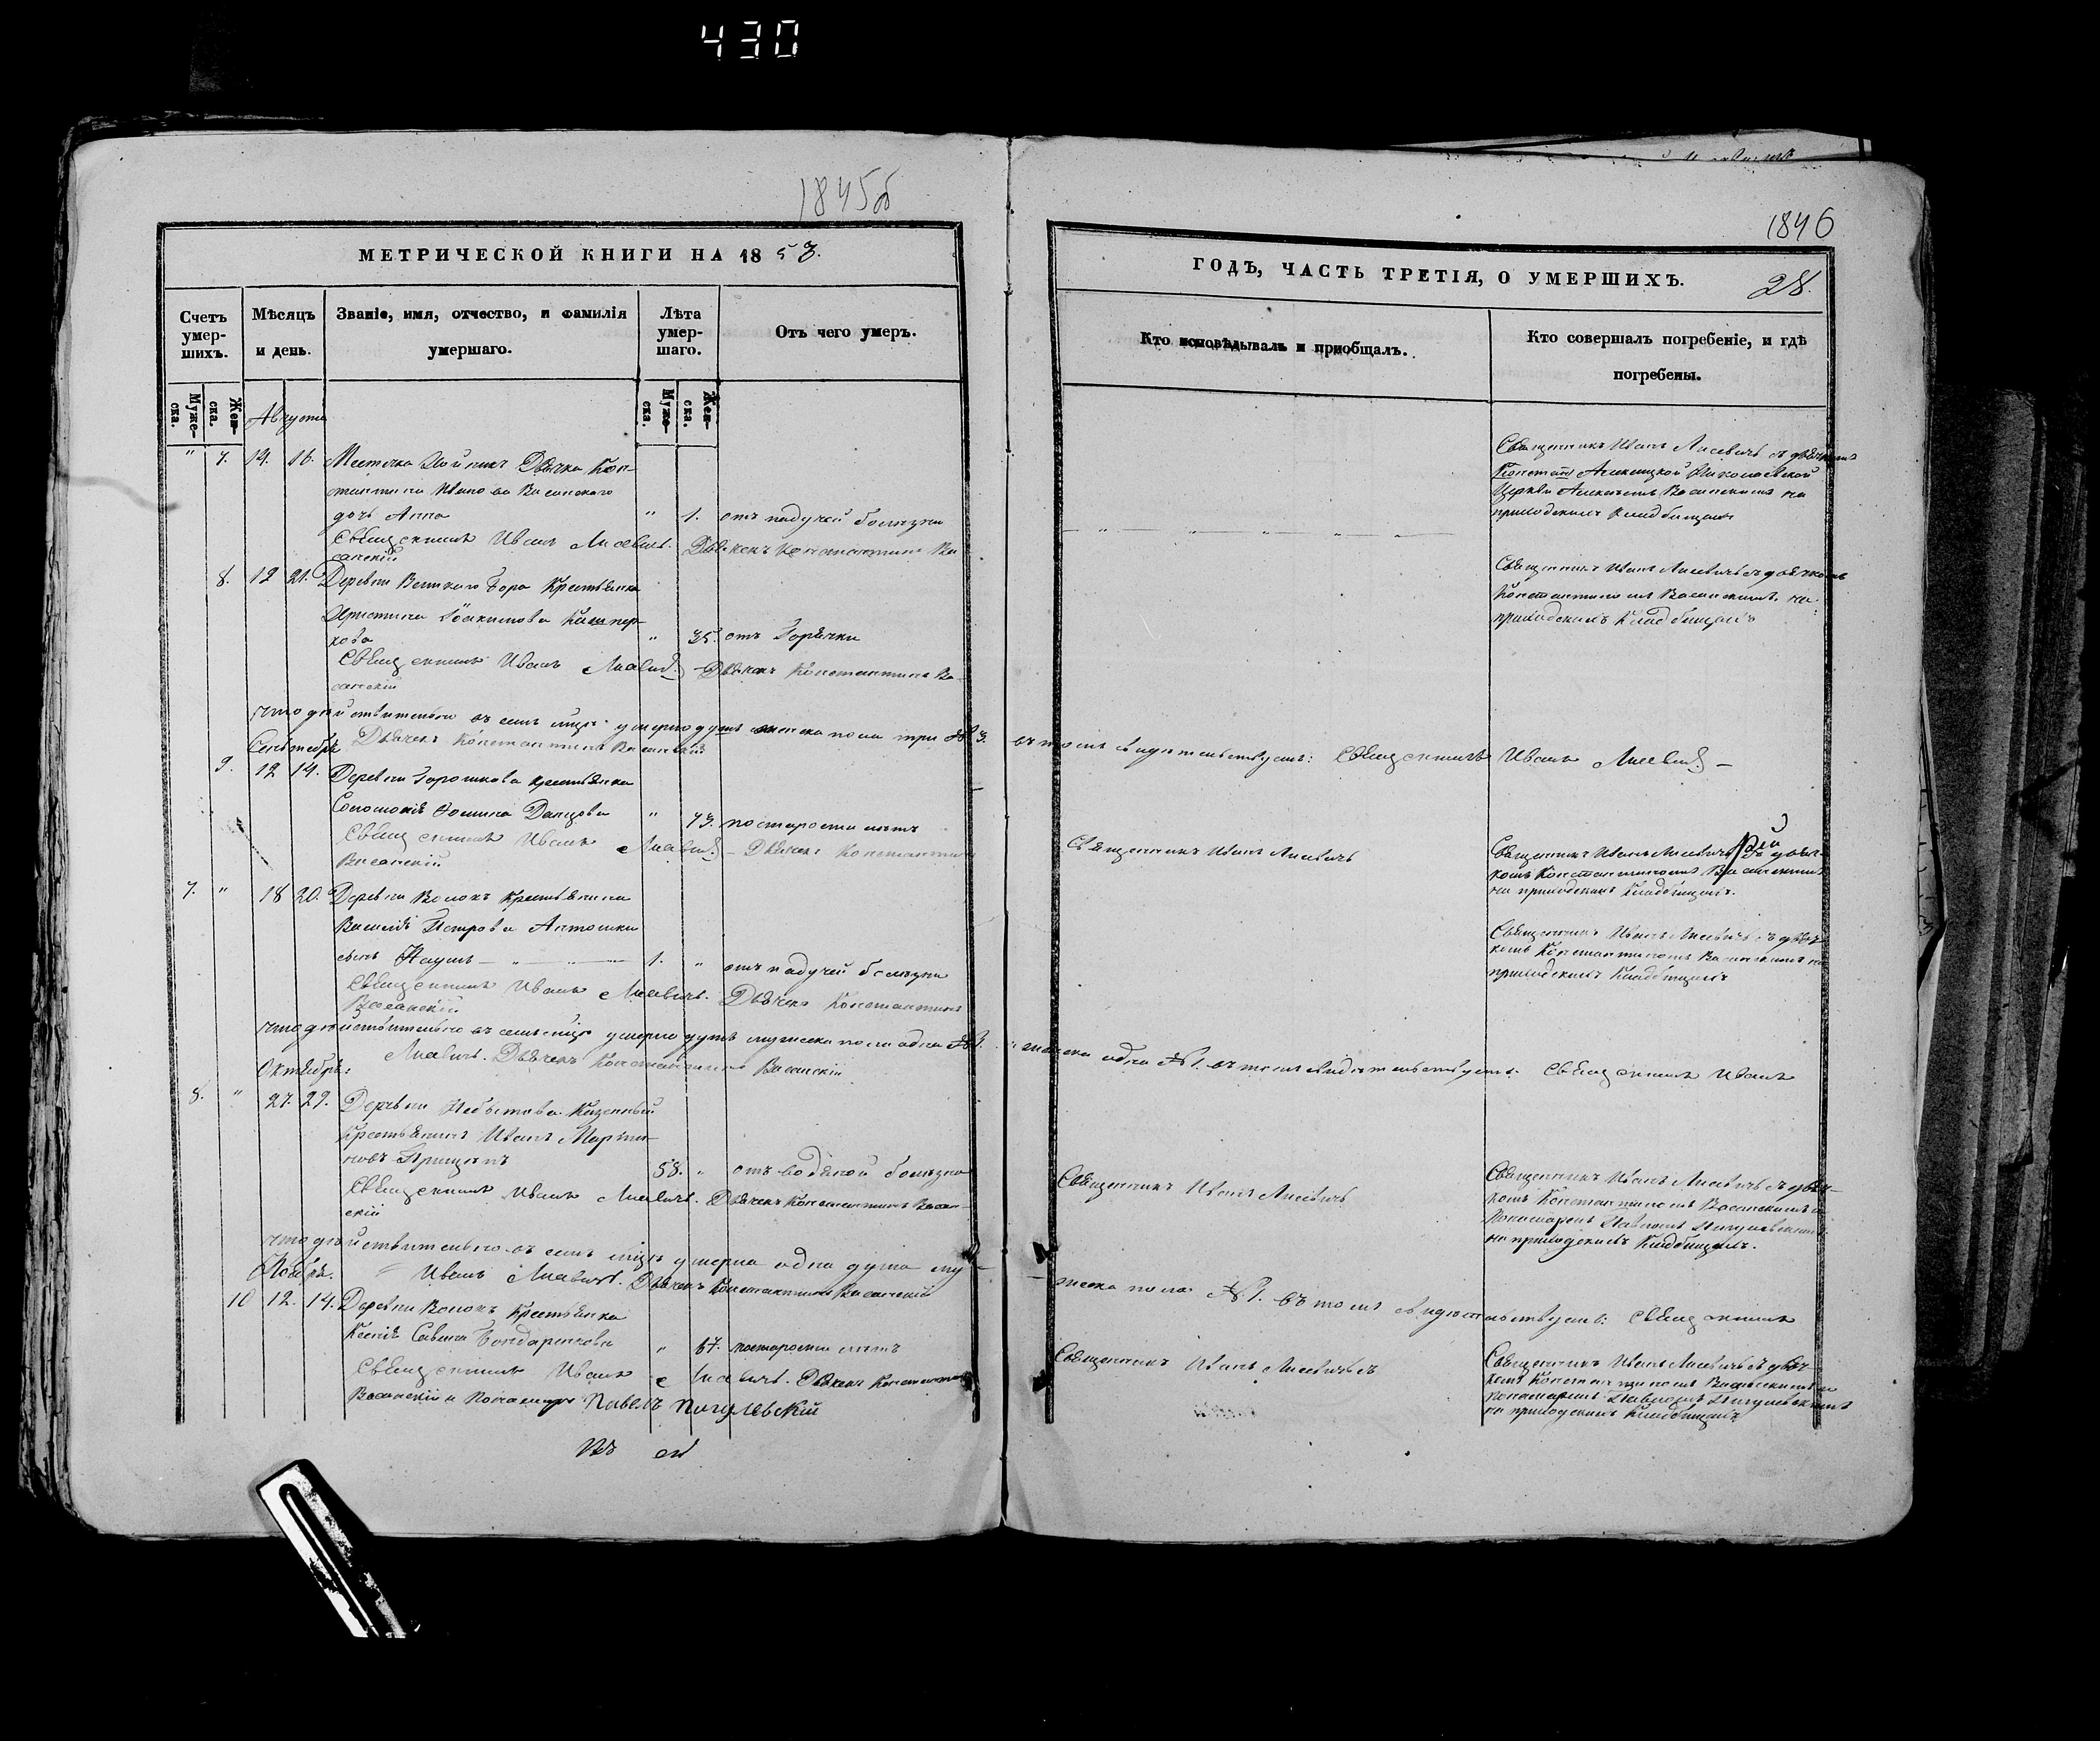 430
1845об
МЕТРИЧЕСКОЙ КНИГИ НА 1853.
Счетъ умер-шихъ.
Мѣсяцъ и день.
Званіе, имя, отчество, и фамилія умершаго.
Лѣта умер-шаго.
Отъ чего умеръ.
Муже-ска. Жен-ска.
Муже-ска. Жен-ска.
Августа
" 7. 14. 16. Местечка Дьячка Кон-
стантина Иванова Васанскаго
дочь Анна " 1. отъ падучей болѣзни
Священникъ Иванъ Лисевичъ. Дьячекъ Константинъ Ва
санскій
8. 12 21. Деревни Великаго Бора Крестьянка
Христина Іоакимова
кова " 35. отъ Горячки
Священникъ Иванъ Лисевичъ Дьячекъ Константинъ Ва-
санскій
что дѣйствительно въ семъ мцѣ умерло душъ женска пола три № 3.
Сентябрь Дьячекъ Константинъ Васанскій
9. 12 14. Деревни Горошкова крестьянка
Соломонія Ѳомина Данцова " 73. по старости лѣтъ
Священникъ Иванъ Лисевичъ – Дьячекъ Константинъ
Васанскій
7. " 18 20. Деревни Волокъ Крестьянина
Василія Петрова Антошки
сынъ Наумъ — " — 1. " отъ падучей болѣзни
Священникъ Иванъ Лисевичъ. Дьячекъ Константинъ
Васанскій
что дѣйствительно въ семъ мцѣ умерло душъ мужеска пола одна № 1.
Октябрь: Лисевичъ. Дьячекъ Константинъ Васанскій
8. " 27. 29. Деревни Небытова Казенный
Крестьянинъ Иванъ Марти-
новъ 58. " отъ водяной болѣзни
Священникъ Иванъ Лисевичъ. Дьячекъ Константинъ Васан-
скій
что дѣйствительно въ семъ мцѣ умерла одна душа му-
Ноябрь. Иванъ Лисевичъ. Дьячекъ Константинъ Васанскій
10 12. 14. Деревни Волокъ Крестьянка
Ксенія Савина Бондаренкова " 67. по старости лѣтъ
Священникъ Иванъ Лисевичъ. Дьячекъ Константинъ
Васанскій и Пономарь Павелъ Пигулевскій
1846
ГОДЪ, ЧАСТЬ ТРЕТІЯ, О УМЕРШИХЪ.
28.
Кто исповѣдывалъ и пріобщалъ.
Кто совершалъ погребеніе, и гдѣ погребены.
Священникъ Иванъ Лисевичъ съ дьячкомъ
Николаевской
Церкви Алексѣемъ Васанскимъ на
приходскомъ Кладбищѣ
Священникъ Иванъ Лисевичъ съ дьячкомъ
Константиномъ Васанскимъ на
приходскомъ Кладбищѣ
въ томъ свидѣтельствуемъ: Священникъ Иванъ Лисевичъ –
Священникъ Иванъ Лисевичъ
Священникъ Иванъ Лисевичъ съ дьяч-
комъ Константиномъ Васанскимъ
на приходскомъ Кладбищѣ.
Священникъ Иванъ Лисевичъ съ дьяч-
комъ Константиномъ Васанскимъ на
приходскомъ Кладбищѣ
женска одна № 1. въ томъ свидѣтельствуемъ: Священникъ Иванъ
Священникъ Иванъ Лисевичъ
Священникъ Иванъ Лисевичъ съ дьяч-
комъ Константиномъ Васанскимъ и
Пономаремъ Павломъ Пигулевскимъ
на приходскомъ Кладбищѣ.
жеска пола № 1. въ томъ свидѣтельствуемъ: Священникъ
Священникъ Иванъ Лисевичъ
Священникъ Иванъ Лисевичъ съ дьяч-
комъ Константиномъ Васанскимъ и
пономаремъ Павломъ Пигулевскимъ
на приходскомъ Кладбищѣ